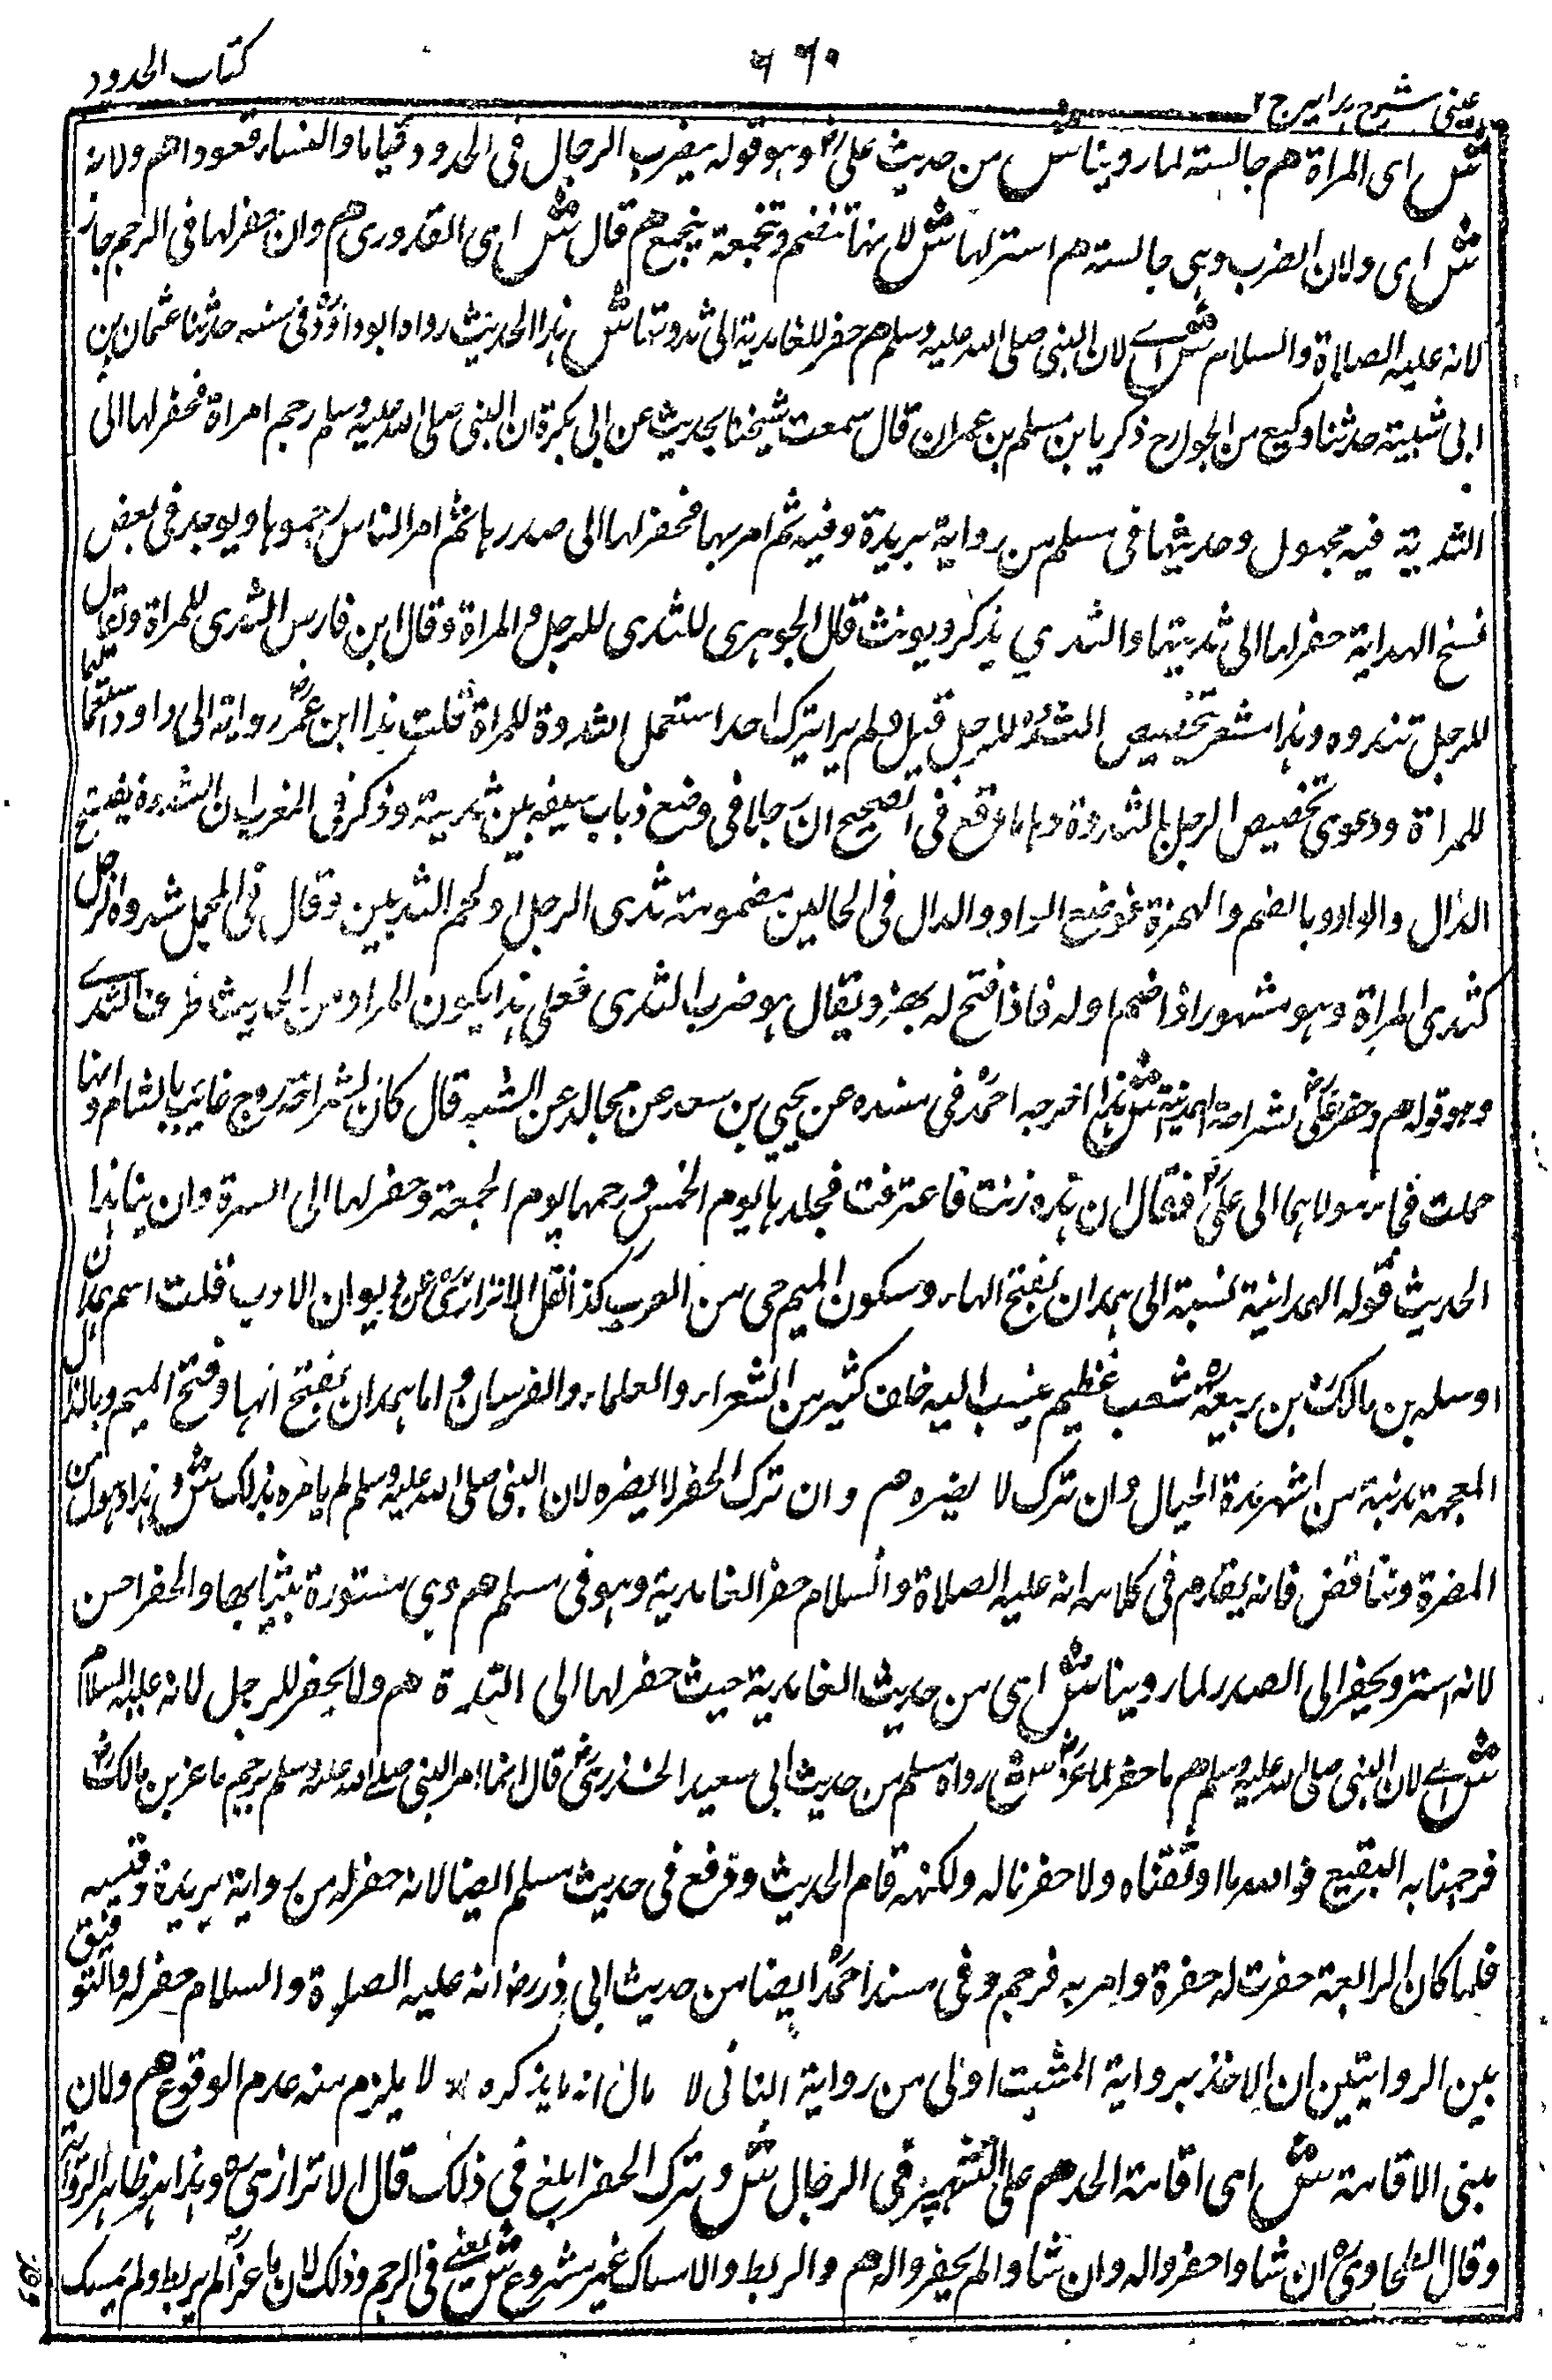 كتاب الحدود
٦٦٠
عينى شرح هدايه ج ٢
ش اى المراة هم جالسة لما روينا ش من حديث على رض وهو قوله يضرب الرجال فى الحدود قياما والنساء قعودا هم ولانه
ش اى ولان الضرب وهى جالسة هم استر لها ش لانها تنضم وتجمعة يجمع هم قال ش اى القدورى هم وان حفر لها فى الرجم جاز
لانه عليه الصلاة والسلام ش اے لان النبى صلى الله عليه وسلم هم حفر للغامدية الى ثدوتها ش هذا الحديث رواه ابو داود فى سننه حدثنا عثمان بن
ابى شيبة حدثنا وكيع من الجوارح ذكريا بن مسلم بن عمران قال سمعت شيخنا يحديث عن ابى بكرة ان النبى صلى الله عليه وسلم رجم امراة فحفر لها الى
الثدية فيه مجهول وحديثها فى مسلم من رواية بريدة وفيه ثم امر بها فحفر لها الى صدرها ثم امر الناس رجموها ويوجد فى بعض
نسخ الهداية حفر لها الى ثدييها والثدي يذكر ويونث قال الجوهرى للثدى للرجل والمراة وقال ابن فارس الثدى للمراة ويقال
للرجل تندوه وهذا مشعر تخصيص الثدوه للرجل قيل ولم يرا يترك احدا ستعمل الثدوة للمراة قلت هذا ابن عمر رواية ابى داود استعملها
للمراة ودعوى تخصيص الرجل بالثدوة وها ما وقع فى الصحيح ان رجلا فى وضع ذباب سيفه بين ثدييه وذكر فى المغرب ان الثدوة بفتح
الدال والواو وبالضم والهمزة موضع الواو والدال فى الحالين مضمومة ثدى الرجل او لحم الثديين وقال فى المجمل ثدوة الرجل
كثدى المراة وهو مشهور اذا ضم اوله فاذا فتح له بهمز ويقال هو ضرب الثدى فعلى هذا يكون المراد من الحديث طرف الثدے
وهو قوله هم وحفر على رض لشراحة الهمدانية ش هذا اخرجه احمد فى مسنده عن يحيى بن سعد عن مجالد عن الشبه قال كان لشراحة زوج غائب بالشام وانها
حملت فجاء مولاها الى على رض فقال ان هذه زنت فاعترفت فجلدها يوم الخمس ورجمها يوم الجمعة وحفر لها الى السرة وان ينا هذا
الحديث قوله الهمدانية نسبة الى همدان بفتح الهاء وسكون الميم حى من العرب كذا نقل الاترازى عن ديوان الادب قلت اسم همدان
اوسله بن مالك بن ربيعة شعب عظيم ينسب اليه خلف كثير من الشعراء والعلماء والفرسان واما همدان بفتح انها وفتح الميم وبالذال
المعجمة مدنية من اشهر مدة الجبال وان ترك لا يضره هم وان ترك الحفر لا يضره لان النبى صلى الله عليه وسلم لم يامره بذلك ش وهذا ذهول من
المضرة وتناقض فانه يقدم فى كلامه انه عليه الصلاة والسلام حفر الغامدية وهو فى مسلم هم وهى مستورة بثيابها والحفر احسن
لانه استر ويحفر الى الصدر لما روينا ش اى من حديث الغامدية حيث حفر لها الى الثدوة هم ولا يحفر للرجل لانه عليه السلام
ش اے لان النبى صلى الله عليه وسلم هم ما حفر لماعز رض ش رواه مسلم من حديث ابى سعيد الخدرى رض قال انما امر النبى صلے الله عليه وسلم برجم ماعز بن مالك رض
فرجمنا به البقيع فوالله ما اوثقناه ولا حفرنا له ولكنه قام الحديث ووقع فى حديث مسلم ايضا لانه حفر له من رواية بريدة وفيه
فلما كان الرابعة حفرت له حفرة وامر به فرجم وفى مسند احمد ايضا من حديث ابى ذر رض انه عليه الصلوة والسلام حفر له والتوفيق
بين الروايتين ان الاخذ برواية المثبت اولى من رواية النافى لا مال انه ما يذكره لا يلزم منه عدم الوقوع هم ولان
مبنى الاقامة ش اى اقامة الحد هم على التشهير فى الرجال ش وترك الحفر ابلغ فى ذلك قال الاترازى ره وهذا هو ظاهر الرواية
وقال الطحاوى ره ان شاوا حفروا له وان شاوا لم يحفروا له هم والربط والامساك غير مشروع ش يعنے فى الرجم وذلك لان ماعزا لم يربط ولم يمسك